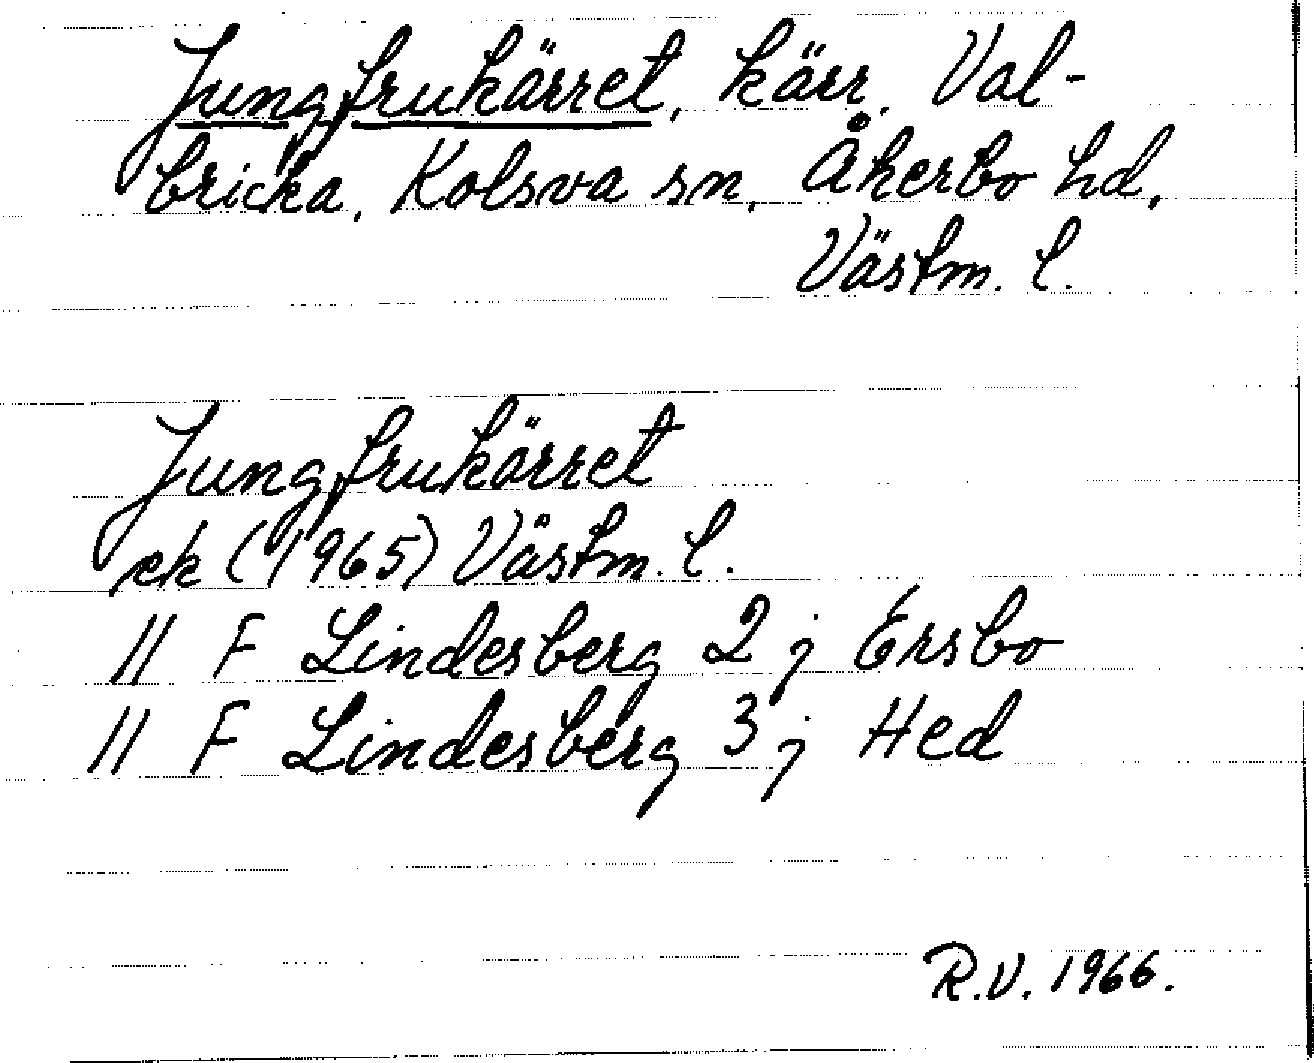 Jungfrukärret, kärr, Val-
bricka, Kolsva sn, Åkerbo hd,
Västm. l.
Jungfrukärret
ek (1965) Västm. l.
11 F Lindesberg 2 j Ersbo
11 F Lindesberg 3 j Hed
R.V. 1966.